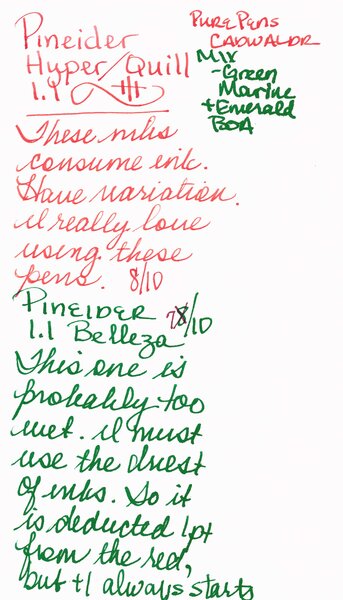 Pineider
Hyper/Quill
1.1
PurePens
CADWALADR
Mix
- Green
Marine
+ Emerald
BOA
These nibs
consume ink.
Have variation.
I really love
using these
pens. 8/10
PINEIDER 8/10
1.1 Belleza
This one is
probably too
wet. I must
use the driest
of inks. So it
is deducted 1pt
from the red,
but +1 always starts